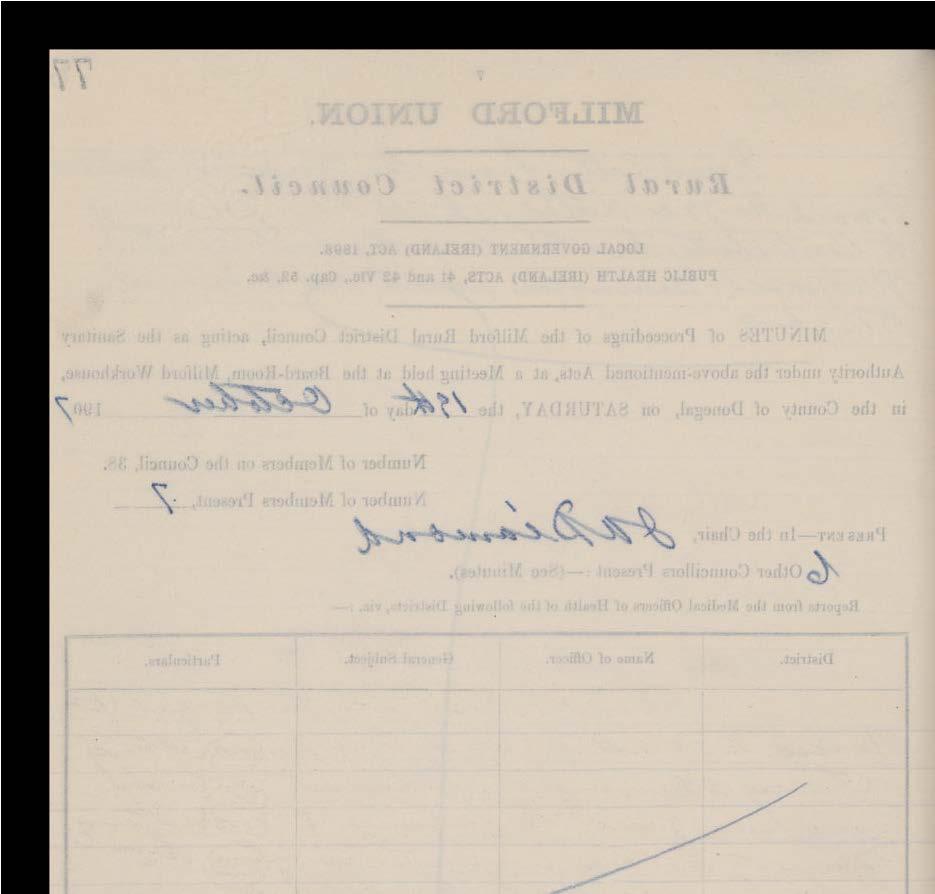 77
7
MILFORD UNION.
Rural District Council.
LOCAL GOVERNMENT (IRELAND) ACT, 1898.
PUBLIC HEALTH (IRELAND) ACTS, 41 and 42 Vic., Cap. 52, &c.
MINUTES of Proceedings of the Milford Rural District Council, acting as the Sanitary
Authority under the above-mentioned Acts, at a Meeting held at the Board-Room, Milford Workhouse,
in the County of Donegal, on SATURDAY, the 19th day of October 1907
Number of Members on the Council, 38.
Number of Members Present, 7
PRESENT—In the Chair, Diamond
6 Other Councillors Present :—(See Minutes).
Reports from the Medical Officers of Health of the following Districts, viz. :—
District. Name of Officer. General Subject. Particulars.